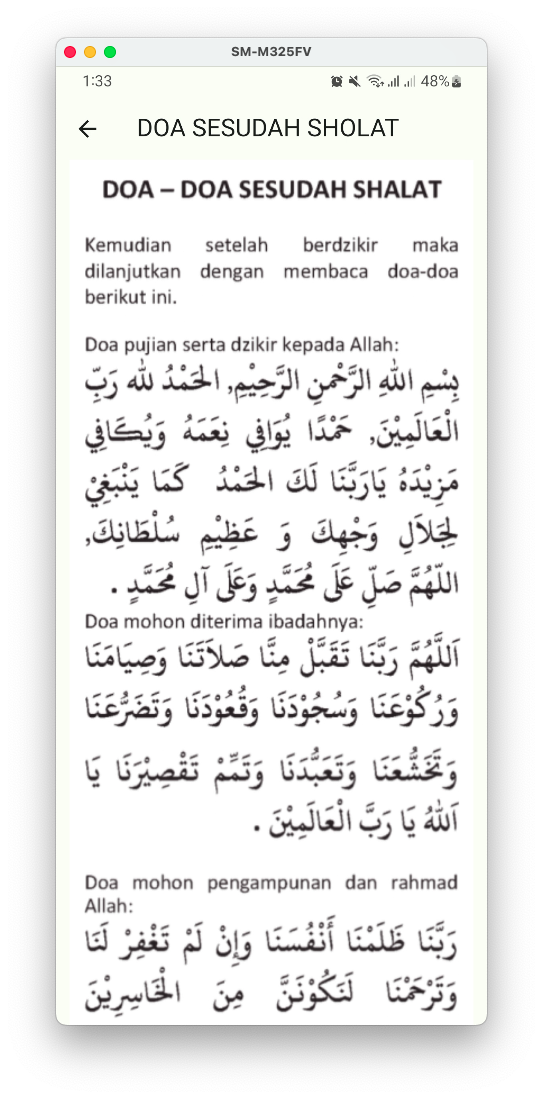 SM-M325FV
1:33
48%
DOA SESUDAH SHOLAT
DOA – DOA SESUDAH SHALAT
Kemudian setelah berdzikir maka
dilanjutkan dengan membaca doa-doa
berikut ini.
Doa pujian serta dzikir kepada Allah:
بِسْمِ اللهِ الرَّحْمنِ الرَّحِيْمِ, الحَمْدُ لله رَبِّ
الْعَالَمِيْنَ, حَمْدًا يُوَافِي نِعَمَهُ وَيُكَافِي
مَزِيْدَهُ يَارَبَّنَا لَكَ الحَمْدُ كَمَا يَنْبَغِيْ
لِجَلاَلِ وَجْهِكَ وَ عَظِيْمِ سُلْطَانِكَ,
اللّهُمَّ صَلِّ عَلَى مُحَمَّدٍ وَعَلَى آلِ مُحَمَّدٍ .
Doa mohon diterima ibadahnya:
اَللَّهُمَّ رَبَّنَا تَقَبَّلْ مِنَّا صَلاَتَنَا وَصِيَامَنَا
وَرُكُوْعَنَا وَسُجُوْدَنَا وَقُعُوْدَنَا وَتَضَرُّعَنَا
وَتَخَشُّعَنَا وَتَعَبُّدَنَا وَتَمِّمْ تَقْصِيْرَنَا يَا
اَللهُ يَا رَبَّ الْعَالَمِيْنَ .
Doa mohon pengampunan dan rahmad
Allah:
رَبَّنَا ظَلَمْنَا أَنْفُسَنَا وَإِنْ لَمْ تَغْفِرْ لَنَا
وَتَرْحَمْنَا لَنَكُوْنَنَّ مِنَ الْخَاسِرِيْنَ